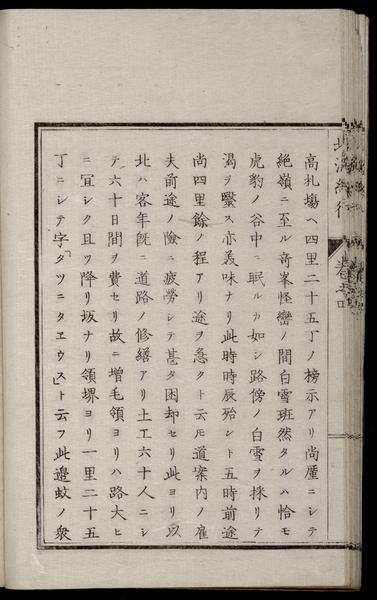 高札塲ヘ四里二十五丁ノ榜示アリ尚厪ニシテ
絶嶺ニ至ル奇峯怪巒ノ間白雪班然タルハ恰モ
虎豹ノ谷中ニ眠ルカ如シ路傍ノ白雪ヲ採リテ
渇ヲ毉ス亦美味ナリ此時時辰殆シト五時前途
尚四里餘ノ程アリ途ヲ急クト云𪜈道案内ノ雇
夫前途ノ險ニ疲勞シテ甚タ困却セリ此ヨリ以
北ハ客年既ニ道路ノ修繕アリ土工六十人ニシ
テ六十日間ヲ費セリ故ニ増毛領ヨリハ路大ヒ
ニ冝シク且ツ降リ坂ナリ領堺ヨリ一里二十五
丁ニシテ字「タツニタヱウス」ト云フ此邉蚊ノ衆